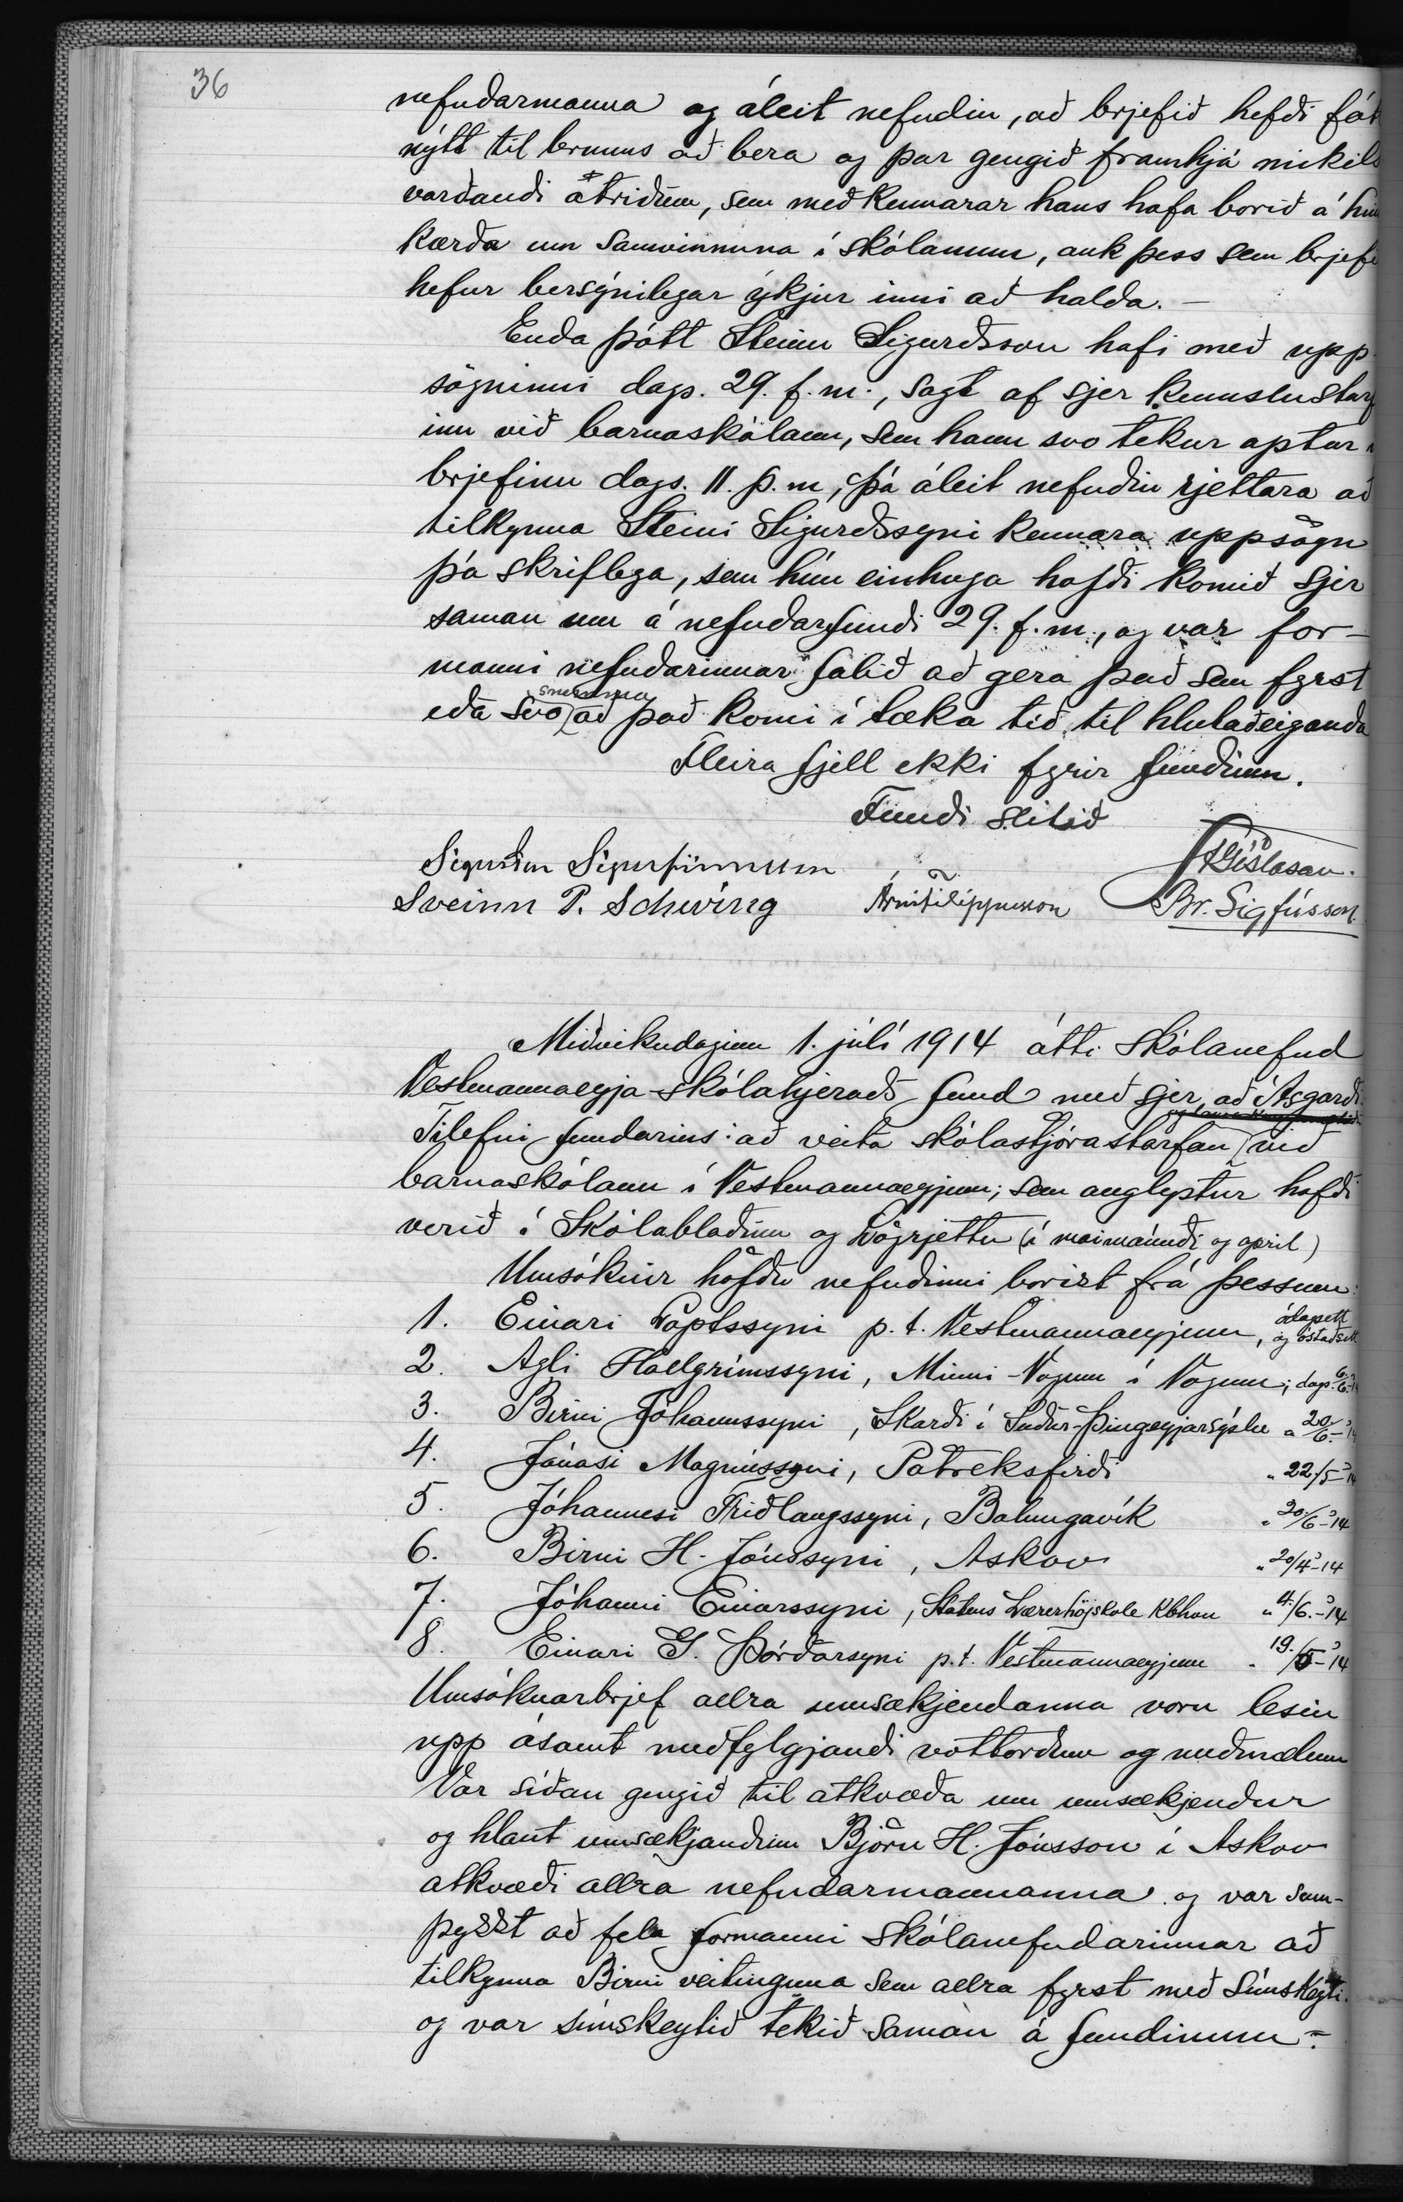 36
nefndarmanna og áleit nefndin, að brjefið hefði fát
nýtt til brunns að bera og þar gengið framhjá mikils
varðandi atriðum, sem meðkennarar hans hafa borið á hin
kærða um samvinnuna í skólanum, auk þess sem brjefi
hefur bersýnilegar ýkjur inni að halda. –
Enda þótt Steinn Sigurðsson hafi með upp-
sögninni dags. 29. f.m., sagt af sjer kennslustarf
inu við barnaskólann, sem hann svo tekur aptur
brjefinu dags. 11. þ.m., þá áleit nefndin rjettara að
tilkynna Steini Sigurðssyni kennara uppsögn
þá skriflega, sem hún einhuga hafði komið sjer
saman um á nefndarfundi 29. f.m., og var for-
manni nefndarinnar falið að gera það sem fyrst
snemma
eða svo að það komi í tæka tíð til hlutaðeiganda
Fleira fjell ekki fyrir fundinn.
Fundi slitið
Sigurður Sigurfinnsson
Gíslason.
Sveinn P. Scheving
Árni Filippusson
Br. Sigfússon
Miðvikudaginn 1. júlí 1914 átti skólanefnd
Vestmannaeyja-skólahjeraðs fund með sjer að Ásgarði.
Tilefni fundarins: að veita skólastjórastarfan við
barnaskólann í Vestmannaeyjum, sem auglýstur hafði
verið í Skólablaðinu og Lögrjettu (í maimánuði og apríl)
Umsóknir höfðu nefndinni borist frá þessum:
1. Einari Loptssyni p.t. Vestmannaeyjum, ódagsett og óstaðsett
2. Agli Hallgrímssyni, Minni-Vogum í Vogum; dags. 6/6-'14
3. Birni Jóhannssyni, Skarði í Suður-Þingeyjarsýslu " 20/6-'14
4. Jónasi Magnússyni, Patreksfirði " 22/5-'14
5. Jóhannesi Friðlaugssyni, Bolungavík " 20/6-'14
6. Birni H. Jónssyni, Askov " 20/4-'14
7. Jóhanni Einarssyni, Statens Lærerhöjskole Kbhan " 4/6.-'14
8. Einari G. Þórðarsyni p.t. Vestmannaeyjum " 19./5-'14
Umsóknarbrjef allra umsækjendanna voru lesin
upp ásamt meðfylgjandi vottorðum og meðmælum
Var síðan gengið til atkvæða um umsækjendur
og hlaut umsækjandinn Björn H. Jónsson í Askov
atkvæði allra nefndarmannanna og var sam-
þykkt að fela formanni skólanefndarinnar að
tilkynna Birni veitinguna sem allra fyrst með símskeyti.
og var símskeytið tekið saman á fundinum –.